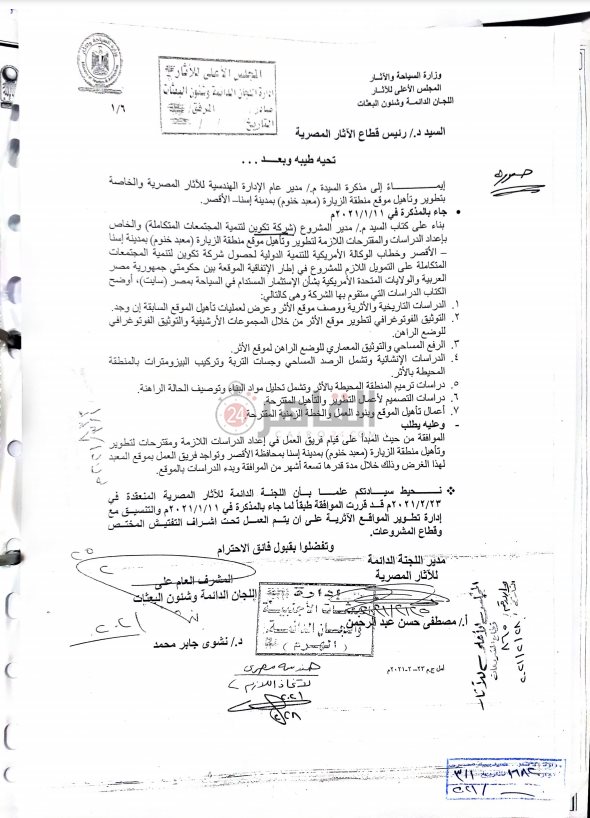 وزارة السياحة والآثار
المجلس الأعلى للآثار
اللجان الدائمة وشئون البعثات
المجلس الأعلى للآثار
إدارة اللجان الدائمة وشئون البعثات
صادر / المرفق /
التاريخ / /
١/٦
السيد د./ رئيس قطاع الآثار المصرية
تحيه طيبه وبعد ...
صورة
إيمــاءة إلى مذكرة السيدة م./ مدير عام الإدارة الهندسية للآثار المصرية والخاصة
بتطوير وتأهيل موقع منطقة الزيارة (معبد خنوم) بمدينة إسنا– الأقصر.
• جاء بالمذكرة في ٢٠٢١/١/١١م
بناء على كتاب السيد م./ مدير المشروع (شركة تكوين لتنمية المجتمعات المتكاملة) والخاص
بإعداد الدراسات والمقترحات اللازمة لتطوير وتأهيل موقع منطقة الزيارة (معبد خنوم) بمدينة إسنا
– الأقصر وخطاب الوكالة الأمريكية للتنمية الدولية لحصول شركة تكوين لتنمية المجتمعات
المتكاملة على التمويل اللازم للمشروع في إطار الإتفاقية الموقعة بين حكومتي جمهورية مصر
العربية والولايات المتحدة الأمريكية بشأن الإستثمار المستدام في السياحة بمصر (سايت)، أوضح
الكتاب الدراسات التي ستقوم بها الشركة وهى كالتالي:
١. الدراسات التاريخية والأثرية ووصف موقع الأثر وعرض لعمليات تأهيل الموقع السابقة إن وجد.
٢. التوثيق الفوتوغرافي لتطوير موقع الأثر من خلال المجموعات الأرشيفية والتوثيق الفوتوغرافي
للوضع الراهن.
٣. الرفع المساحي والتوثيق المعماري للوضع الراهن لموقع الأثر.
٤. الدراسات الإنشائية وتشمل الرصد المساحي وجسات التربة وتركيب البيزومترات بالمنطقة
المحيطة بالأثر.
٥. دراسات ترميم المنطقة المحيطة بالأثر وتشمل تحليل مواد البناء وتوصيف الحالة الراهنة.
٦. دراسات التصميم لأعمال التطوير والتأهيل المقترحة.
٧. أعمال تأهيل الموقع وبنود العمل والخطة الزمنية المقترحة.
القاهرة 24
– وعليه يطلب
الموافقة من حيث المبدأ على قيام فريق العمل في إعداد الدراسات اللازمة ومقترحات لتطوير
وتأهيل منطقة الزيارة (معبد خنوم) بمدينة إسنا بمحافظة الأقصر وتواجد فريق العمل بموقع المعبد
لهذا الغرض وذلك خلال مدة قدرها تسعة أشهر من الموافقة وبدء الدراسات بالموقع.
❖ نحيط سيادتكم علما بأن اللجنة الدائمة للآثار المصرية المنعقدة في
٢٠٢١/٢/٢٣م قد قررت الموافقة طبقاً لما جاء بالمذكرة في ٢٠٢١/١/١١م والتنسيق مع
إدارة تطوير المواقع الآثرية على ان يتم العمل تحت اشراف التفتيش المختص
وقطاع المشروعات.
وتفضلوا بقبول فائق الاحترام
مدير اللجنة الدائمة
للآثار المصرية
المشرف العام على
اللجان الدائمة وشئون البعثات
أ./ مصطفى حسن عبد الرحمن
د./ نشوى جابر محمد
(الهرم)
هندسة مصري
لاتخاذ اللازم
امل ج.م ٢٣-٢-٢٠٢١م